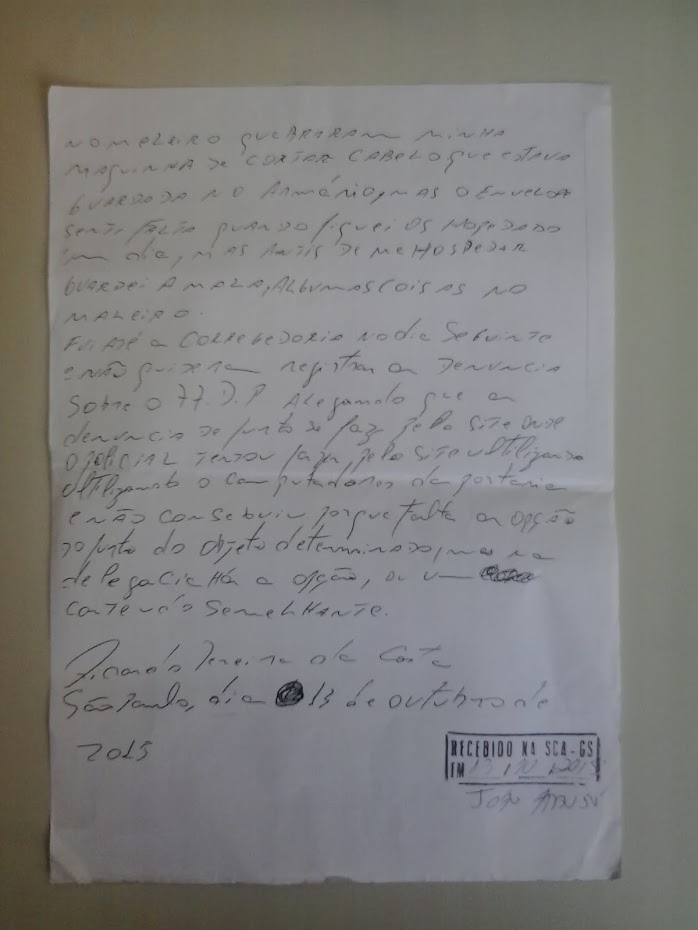 NO MALEIRO QUEBRARAM MINHA
MAQUINHA DE CORTAR CABELO que estava
GUARDADA NO ARMÁRIO, MAS O ENVELOPE
SENTI FALTA QUANDO fiquei OS HOSPEDADO
um dia, MAS ANTES DE ME HOSPEDAR
GUARDEI A MALA, ALGUMAS COISAS NO
MALEIRO.
FUI ATÉ a CORREGEDORIA NO dia SEGUINTE
e NÃO quiseram registrar a DENUNCIA
Sobre o 77. D.P Alegando que a
denuncia de furto se faz pelo site onde
O POLICIAL TENTOU fazer pelo site ultilizando
ultilizando o computadores da portaria
e NÃO CONSEGUIU porque falta a OPÇÃO
do furto do objeto determinado, mas na
delegacia HÁ a opção, ou um
conteúdo SEMELHANTE.
Pereira da Costa
São Paulo, dia 13 de outubro de
2015
RECEBIDO NA SCA-GS
EM 13 / 10 / 2015